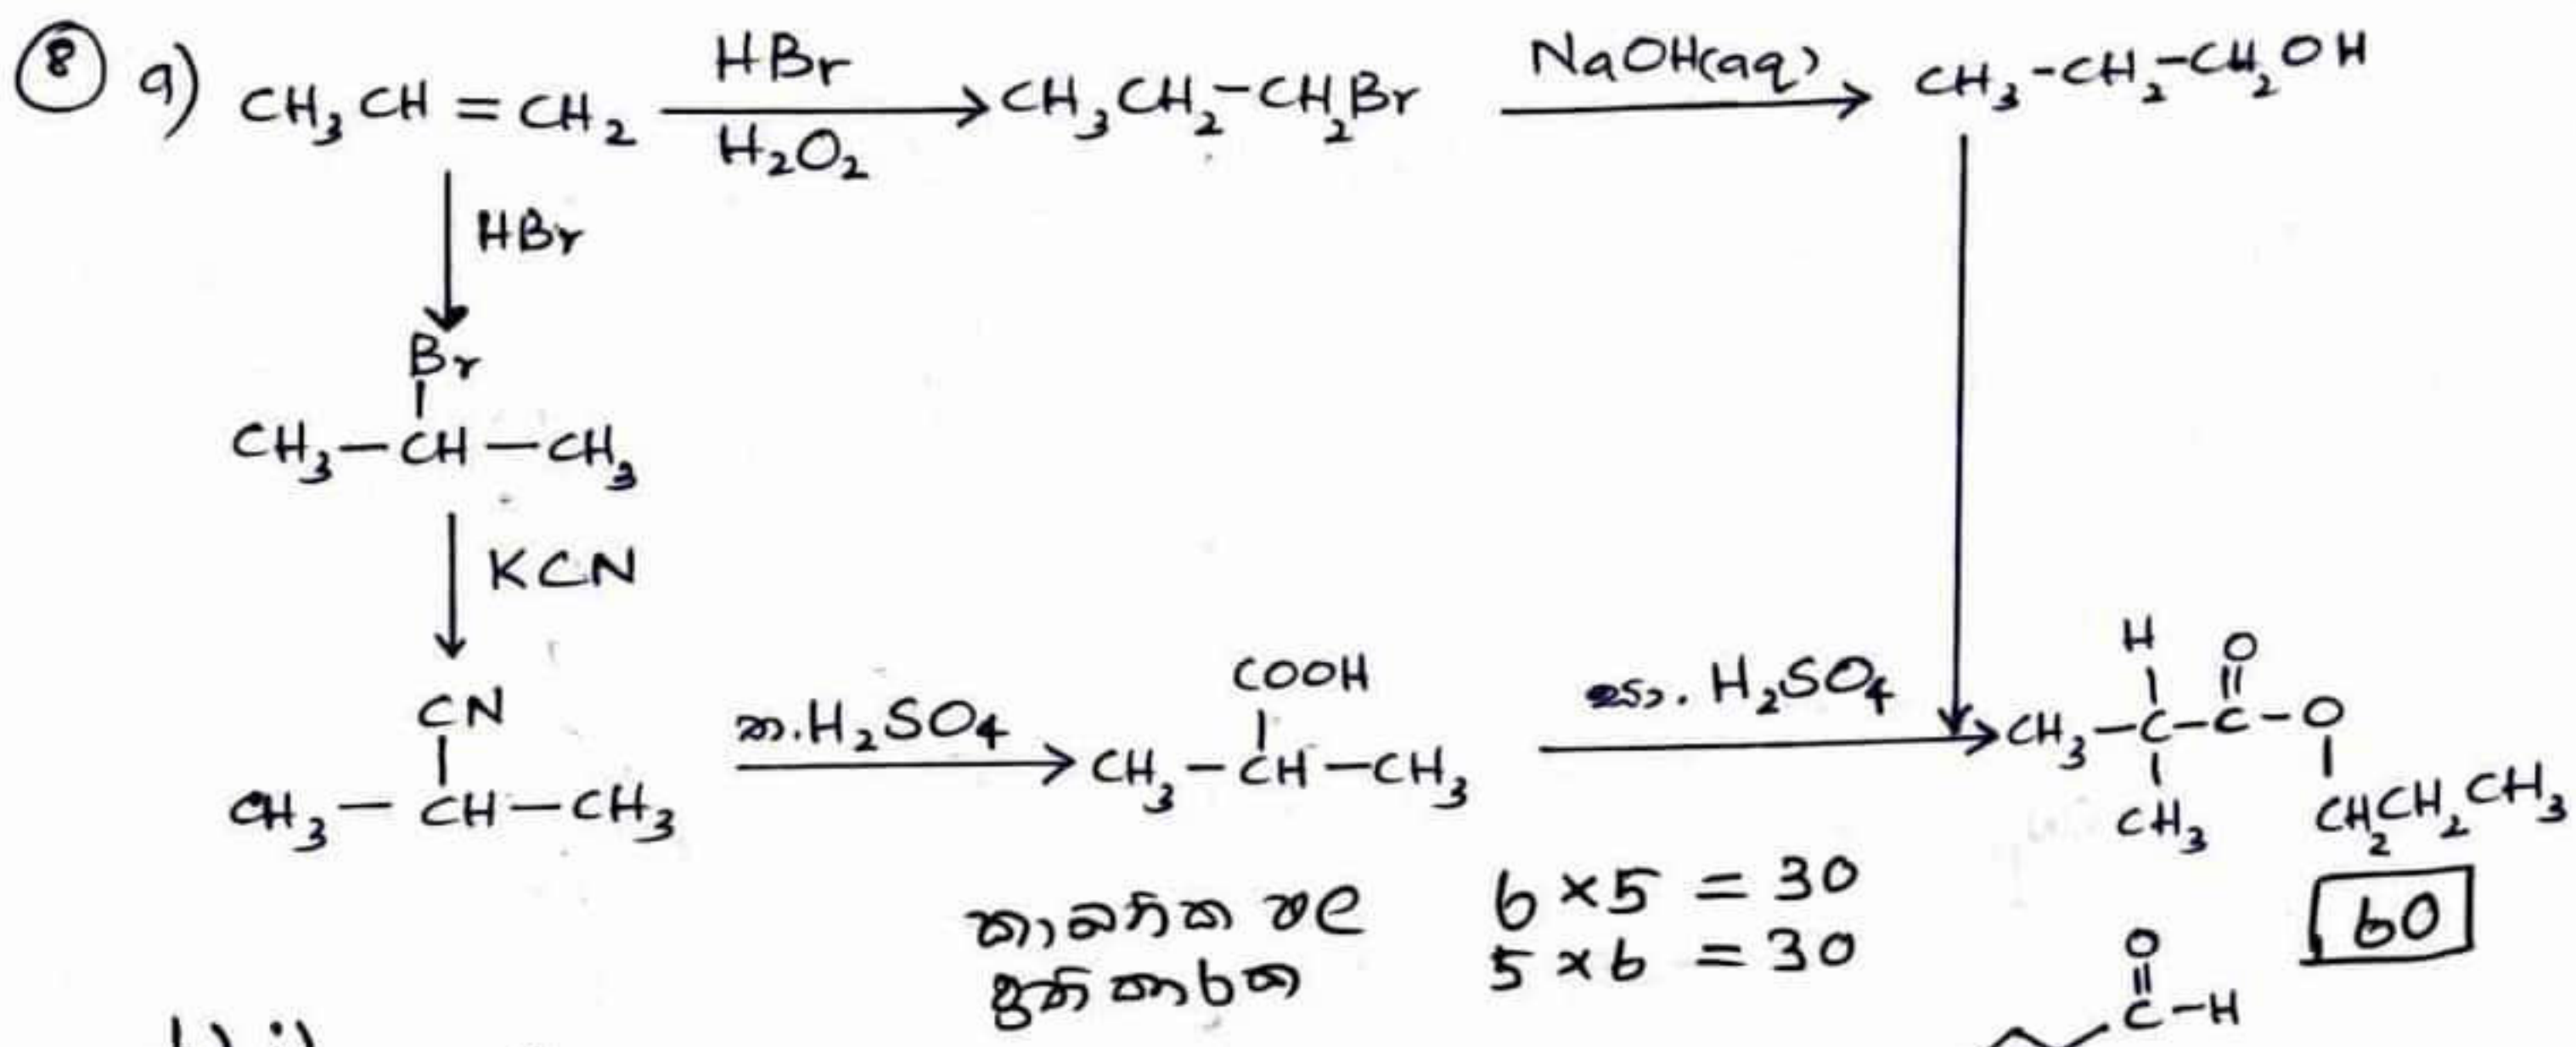 ⑧ a) CH₃CH=CH₂ HBr H₂O₂ → CH₃CH₂-CH₂Br NaOH(aq) → CH₃-CH₂-CH₂OH
↓ HBr
Br
CH₃-CH-CH₃
↓ KCN
CN
CH₃-CH-CH₃ ත.H₂SO₄ →
COOH
CH₃-CH-CH₃ සා. H₂SO₄ →
H O
CH₃-C-C-O
CH₃ CH₂CH₂CH₃
කාබනික ඵල 6×5 = 30
ප්‍රතිකාරක 5×6 = 30
60
O
C-H